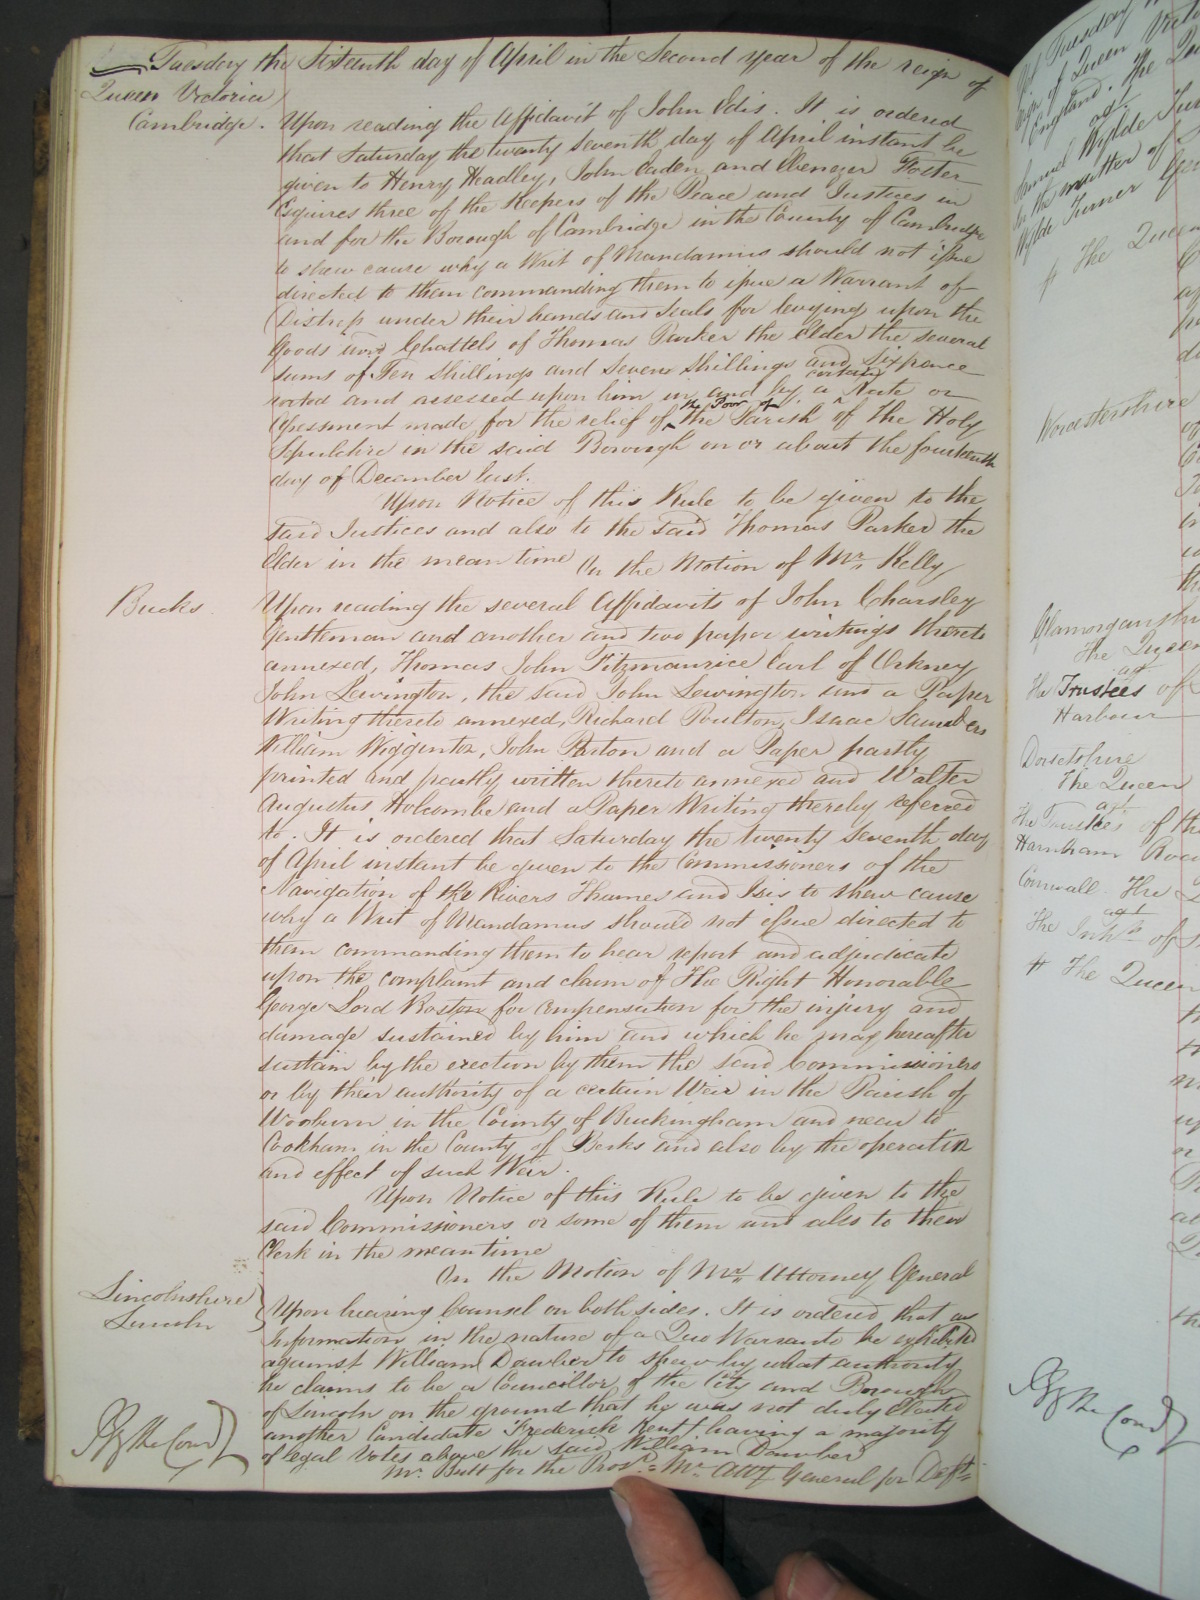 Tuesday the Sixteenth day of April in the Second year of the reign of
Queen Victoria
Cambridge. Upon reading the Affidavit of John Odis. It is ordered
that Saturday the twenty seventh day of April instant be
given to Henry Headley, John Eaden and Ebenezer Foster
Esquires three of the Keepers of the Peace and Justices in
and for the Borough of Cambridge in the County of Cambridge
to shew cause why a Writ of Mandamus should not issue
directed to them commanding them to issue a Warrant of
Distress under their hands and Seals for levying upon the
goods and Chattels of Thomas Parker the elder the several
sums of Ten Shillings and Seven Shillings and Sixpence
rated and assessed upon him in and by a certain Rate or
Assessment made for the relief of the Poor of the Parish of the Holy
Sepulchre in the said Borough on or about the fourteenth
day of December last.
Upon Notice of this Rule to be given to the
said Justices and also to the said Thomas Parker the
Elder in the mean time On the Motion of Mr. Kelly
Bucks. Upon reading the several Affidavits of John Charsley
Gentleman and another and two paper writings thereto
annexed, Thomas John Fitzmaurice Earl of Orkney
John Lewington, the said John Lewington and a Paper
Writing thereto annexed, Richard Poulton, Isaac Saunders
William Wigginton, John Parton and a Paper partly
printed and partly written thereto annexed and Walter
Augustus Holcombe and a Paper Writing thereby referred
to. It is ordered that Saturday the twenty Seventh day
of April instant be given to the Commissioners of the
Navigation of the Rivers Thames and Isis to shew cause
why a Writ of Mandamus should not issue directed to
them commanding them to hear report and adjudicate
upon the complaint and claim of The Right Honorable
George Lord Boston for compensation for the injury and
damage sustained by him and which he may hereafter
sustain by the erection by them the said Commissioners
or by their authority of a certain Weir in the Parish of
Wooburn in the County of Buckingham and near to
Cookham in the County of Berks and also by the operation
and effect of such Weir.
Upon Notice of this Rule to be given to the
said Commissioners or some of them and also to their
Clerk in the mean time
On the Motion of Mr. Attorney General
Lincolnshire
Lincoln
Upon hearing Counsel on both sides. It is ordered that an
Information in the nature of a Quo Warranto be exhibited
against William Dawber to shew by what authority
he claims to be a Councillor of the City and Borough
of Lincoln on the ground that he was not duly elected
another Candidate Frederick Kent having a majority
of legal Votes above the said William Dawber
Mr. Butt for the Prosr. = Mr. Atty General for Deft.
By the Court
Worcestershire
Glamorganshire
The Queen
agt
The Trustees of
Harbour
Dorsetshire
The Queen
agt
The Trustees of the
Harnham
Cornwall. The
agt
The Inhts of
The Queen
By the Court